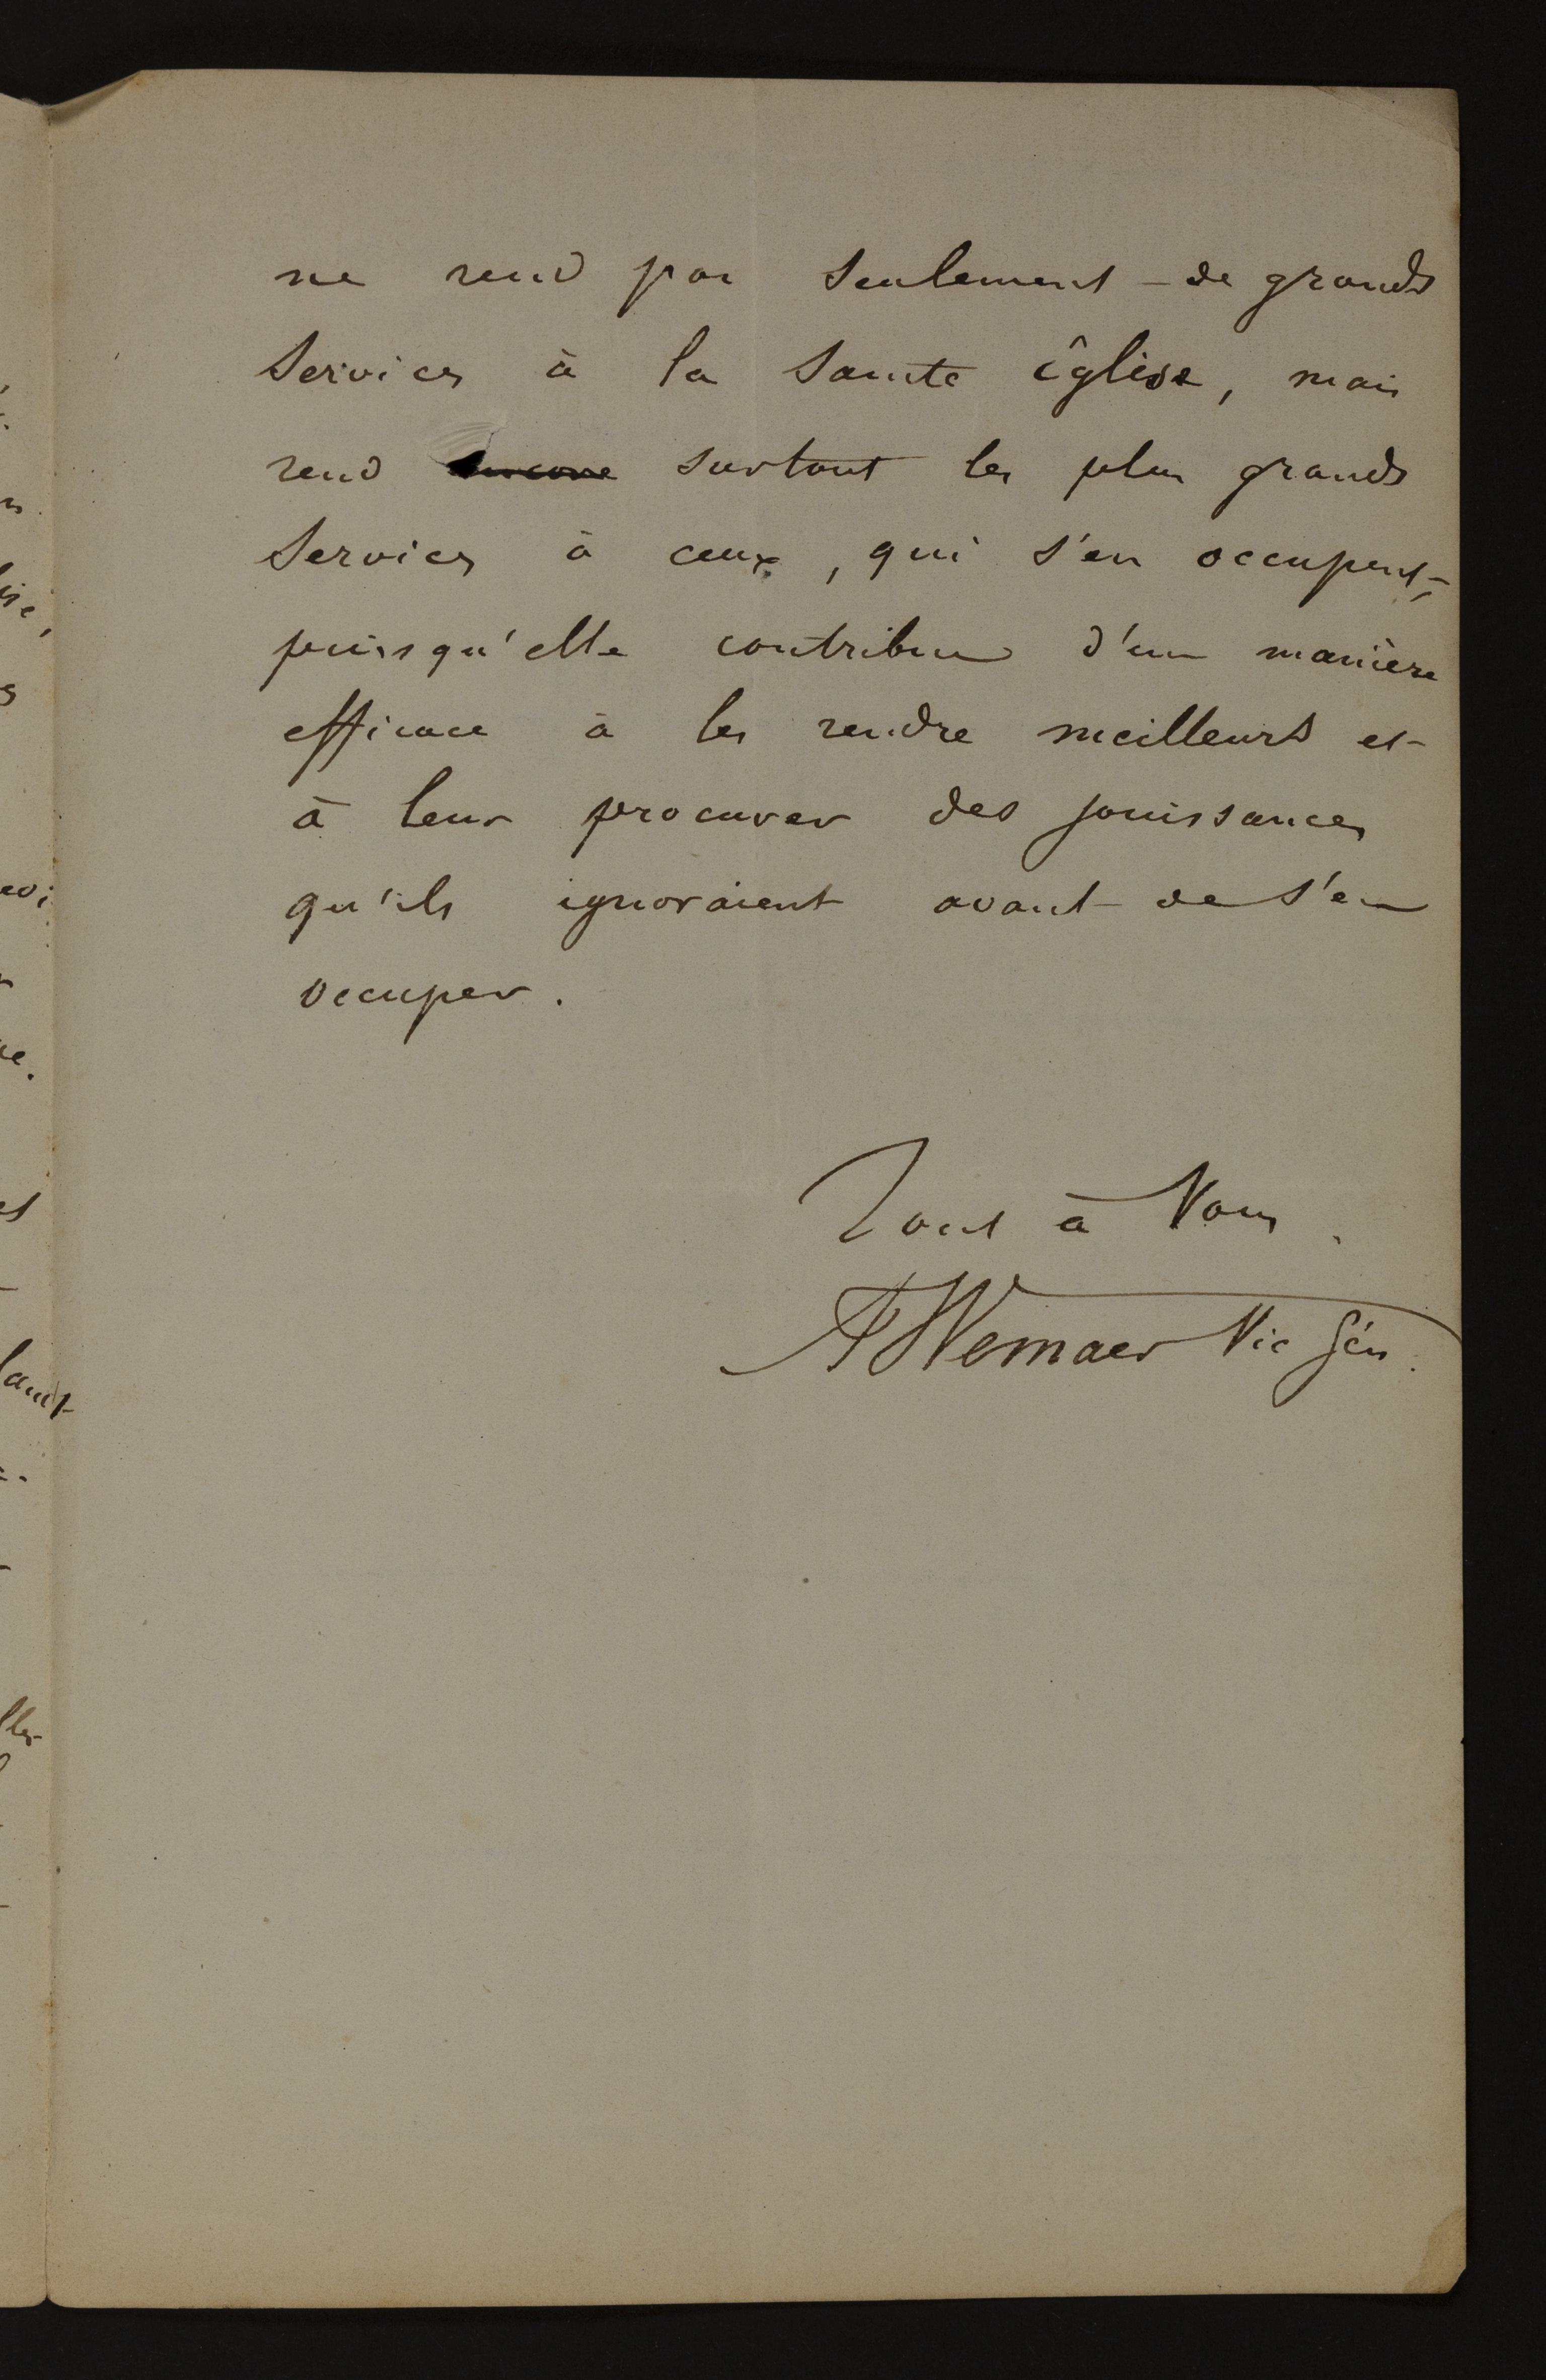 ne rend pas seulement de grands
services à la sainte église, mais
rend encore surtout les plus grands
services à ceux, qui s'en occupent,
puisqu'elle contribue d'une manière
efficace à les rendre meilleurs et
à leur procurer des jouissances
qu'ils ignoraient avant de s'en
occuper.
Tout à Vous.
A Wemaer Vic Gén.